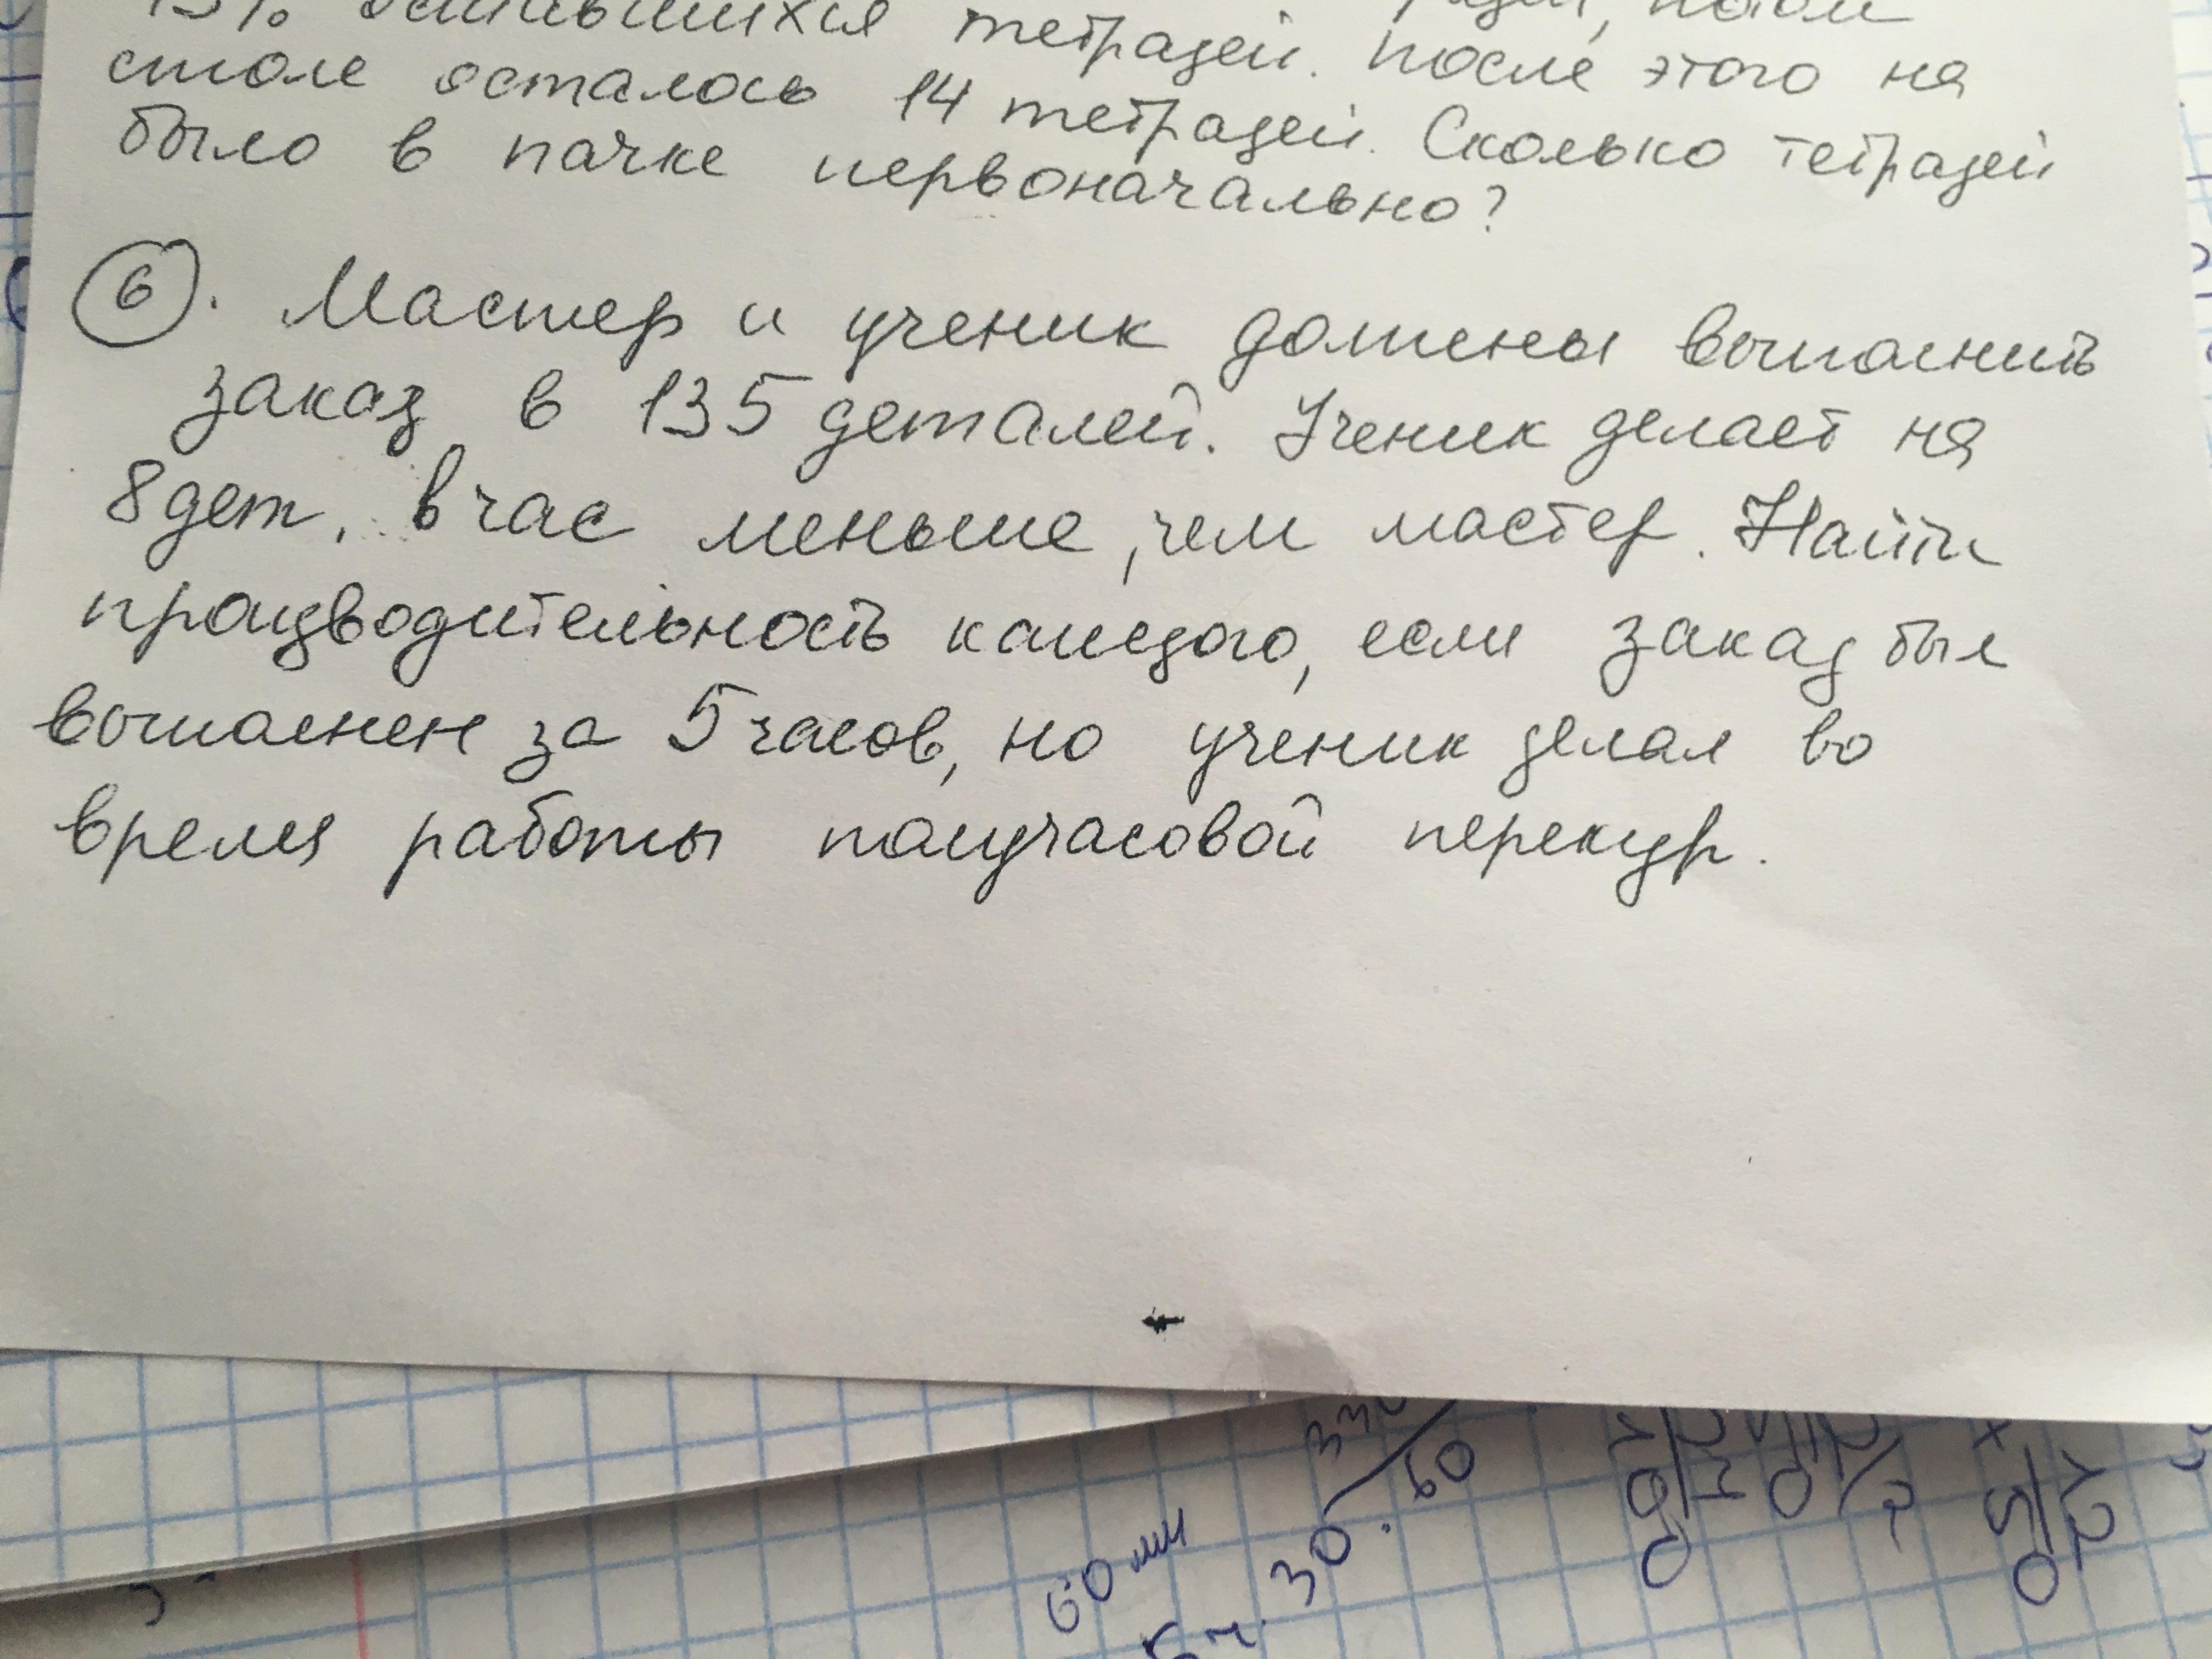 15% оставшихся тетрадей. После этого на
столе осталось 14 тетрадей. Сколько тетрадей
было в пачке первоначально?
6. Мастер и ученик должны выполнить
заказ в 135 деталей. Ученик делает на
8 дет. в час меньше, чем мастер. Найти
производительность каждого, если заказ был
выполнен за 5 часов, но ученик делал во
время работы получасовой перекур.
60 мин
5 ч. 30. 60